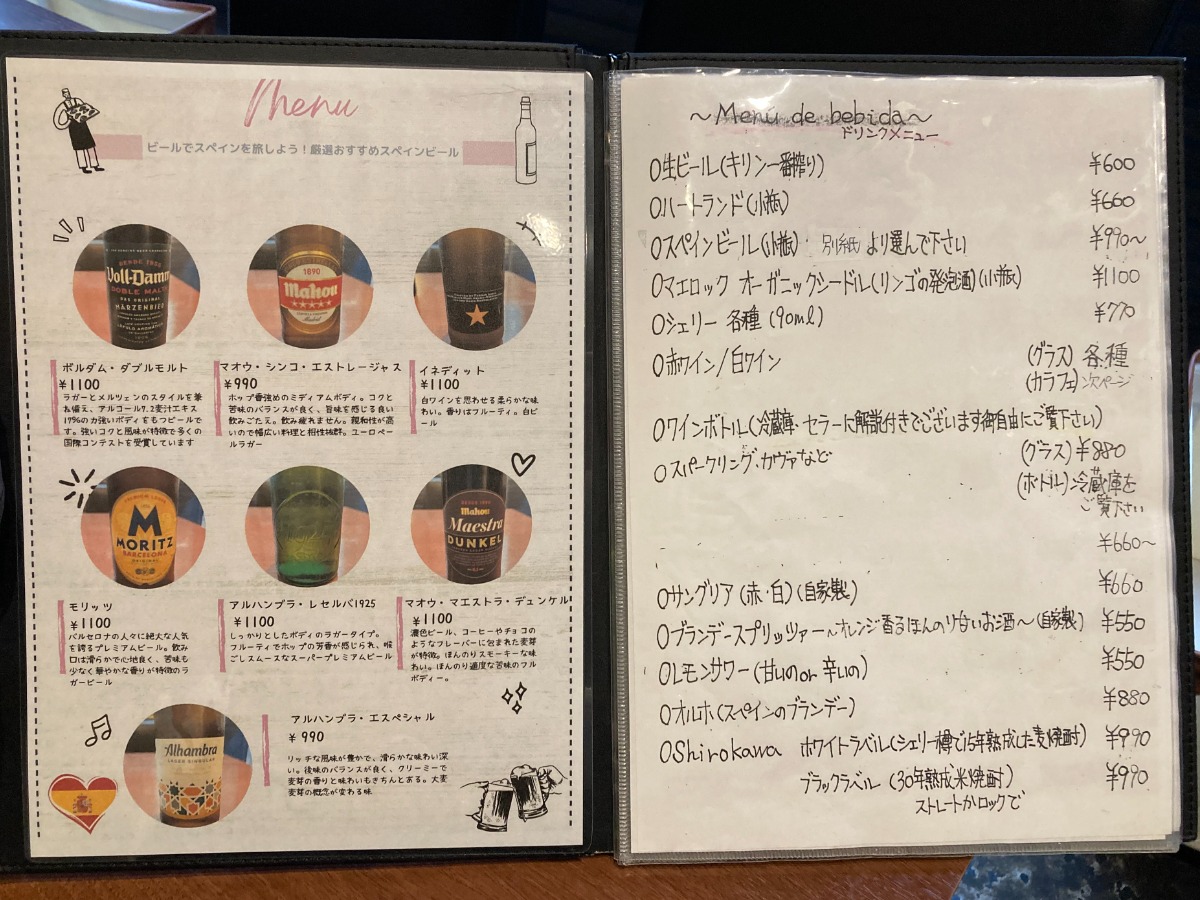 Menu
ビールでスペインを旅しよう！厳選おすすめスペインビール
DESDE 1955
Voll-Damm
DOBLE MALTA
MÄRZENBIER
1890
Mahou
ボルダム・ダブルモルト
¥1100
ラガーとメルツェンのスタイルを兼
ね備え、アルコール7.2麦汁エキス
17%の力強いボディをもつビールで
す。強いコクと風味が特徴で多くの
国際コンテストを受賞しています
マオウ・シンコ・エストレージャス
¥990
ホップ香強めのミディアムボディ。コクと
苦味のバランスが良く、旨味を感じる良い
飲みごたえ。飲み疲れません。親和性が高
いので幅広い料理と相性抜群。ユーロペー
ルラガー
イネディット
¥1100
白ワインを思わせる柔らかな味
わい。香りはフルーティ。白ビ
ール
M
MORITZ
BARCELONA
Mahou
Maestra
DUNKEL
モリッツ
¥1100
バルセロナの人々に絶大な人気
を誇るプレミアムビール。飲み
口は滑らかで心地良く、苦味も
少なく華やかな香りが特徴のラ
ガービール
アルハンブラ・レセルバ1925
¥1100
しっかりとしたボディのラガータイプ。
フルーティでホップの芳香が感じられ、喉
ごしスムースなスーパープレミアムビール
マオウ・マエストラ・デュンケル
¥1100
濃色ビール、コーヒーやチョコ
のようなフレーバーに包まれた麦芽
が特徴。ほんのりスモーキーな味
わい。ほんのり適度な苦味のフル
ボディー。
Alhambra
LAGER SINGULAR
アルハンブラ・エスペシャル
¥ 990
リッチな風味が豊かで、滑らかな味わい深
い。後味のバランスが良く、クリーミーで
麦芽の香りと味わいもきちんとある。大麦
麦芽の概念が変わる味
～Menú de bebida～
ドリンクメニュー
○生ビール(キリン一番搾り) ¥600
○ハートランド(小瓶) ¥660
○スペインビール(小瓶) 別紙より選んで下さい ¥990～
○マエロック オーガニックシードル(リンゴの発泡酒)(小瓶) ¥1100
○シェリー 各種 (90ml) ¥770
○赤ワイン/白ワイン (グラス) 各種
(カラフェ)次ページ
○ワインボトル(冷蔵庫・セラーに解説付きでございます御自由にご覧下さい)
○スパークリング・カヴァなど (グラス)¥880
(ボトル)冷蔵庫を
ご覧下さい
¥660～
○サングリア(赤・白)(自家製) ¥660
○ブランデースプリッツァー～オレンジ香るほんのり甘いお酒～(自家製) ¥550
○レモンサワー(甘いの or 辛いの) ¥550
○オルホ(スペインのブランデー) ¥880
○Shirokawa ホワイトラベル(シェリー樽で15年熟成した麦焼酎) ¥990
ブラックラベル(30年熟成米焼酎) ¥990
ストレートかロックで